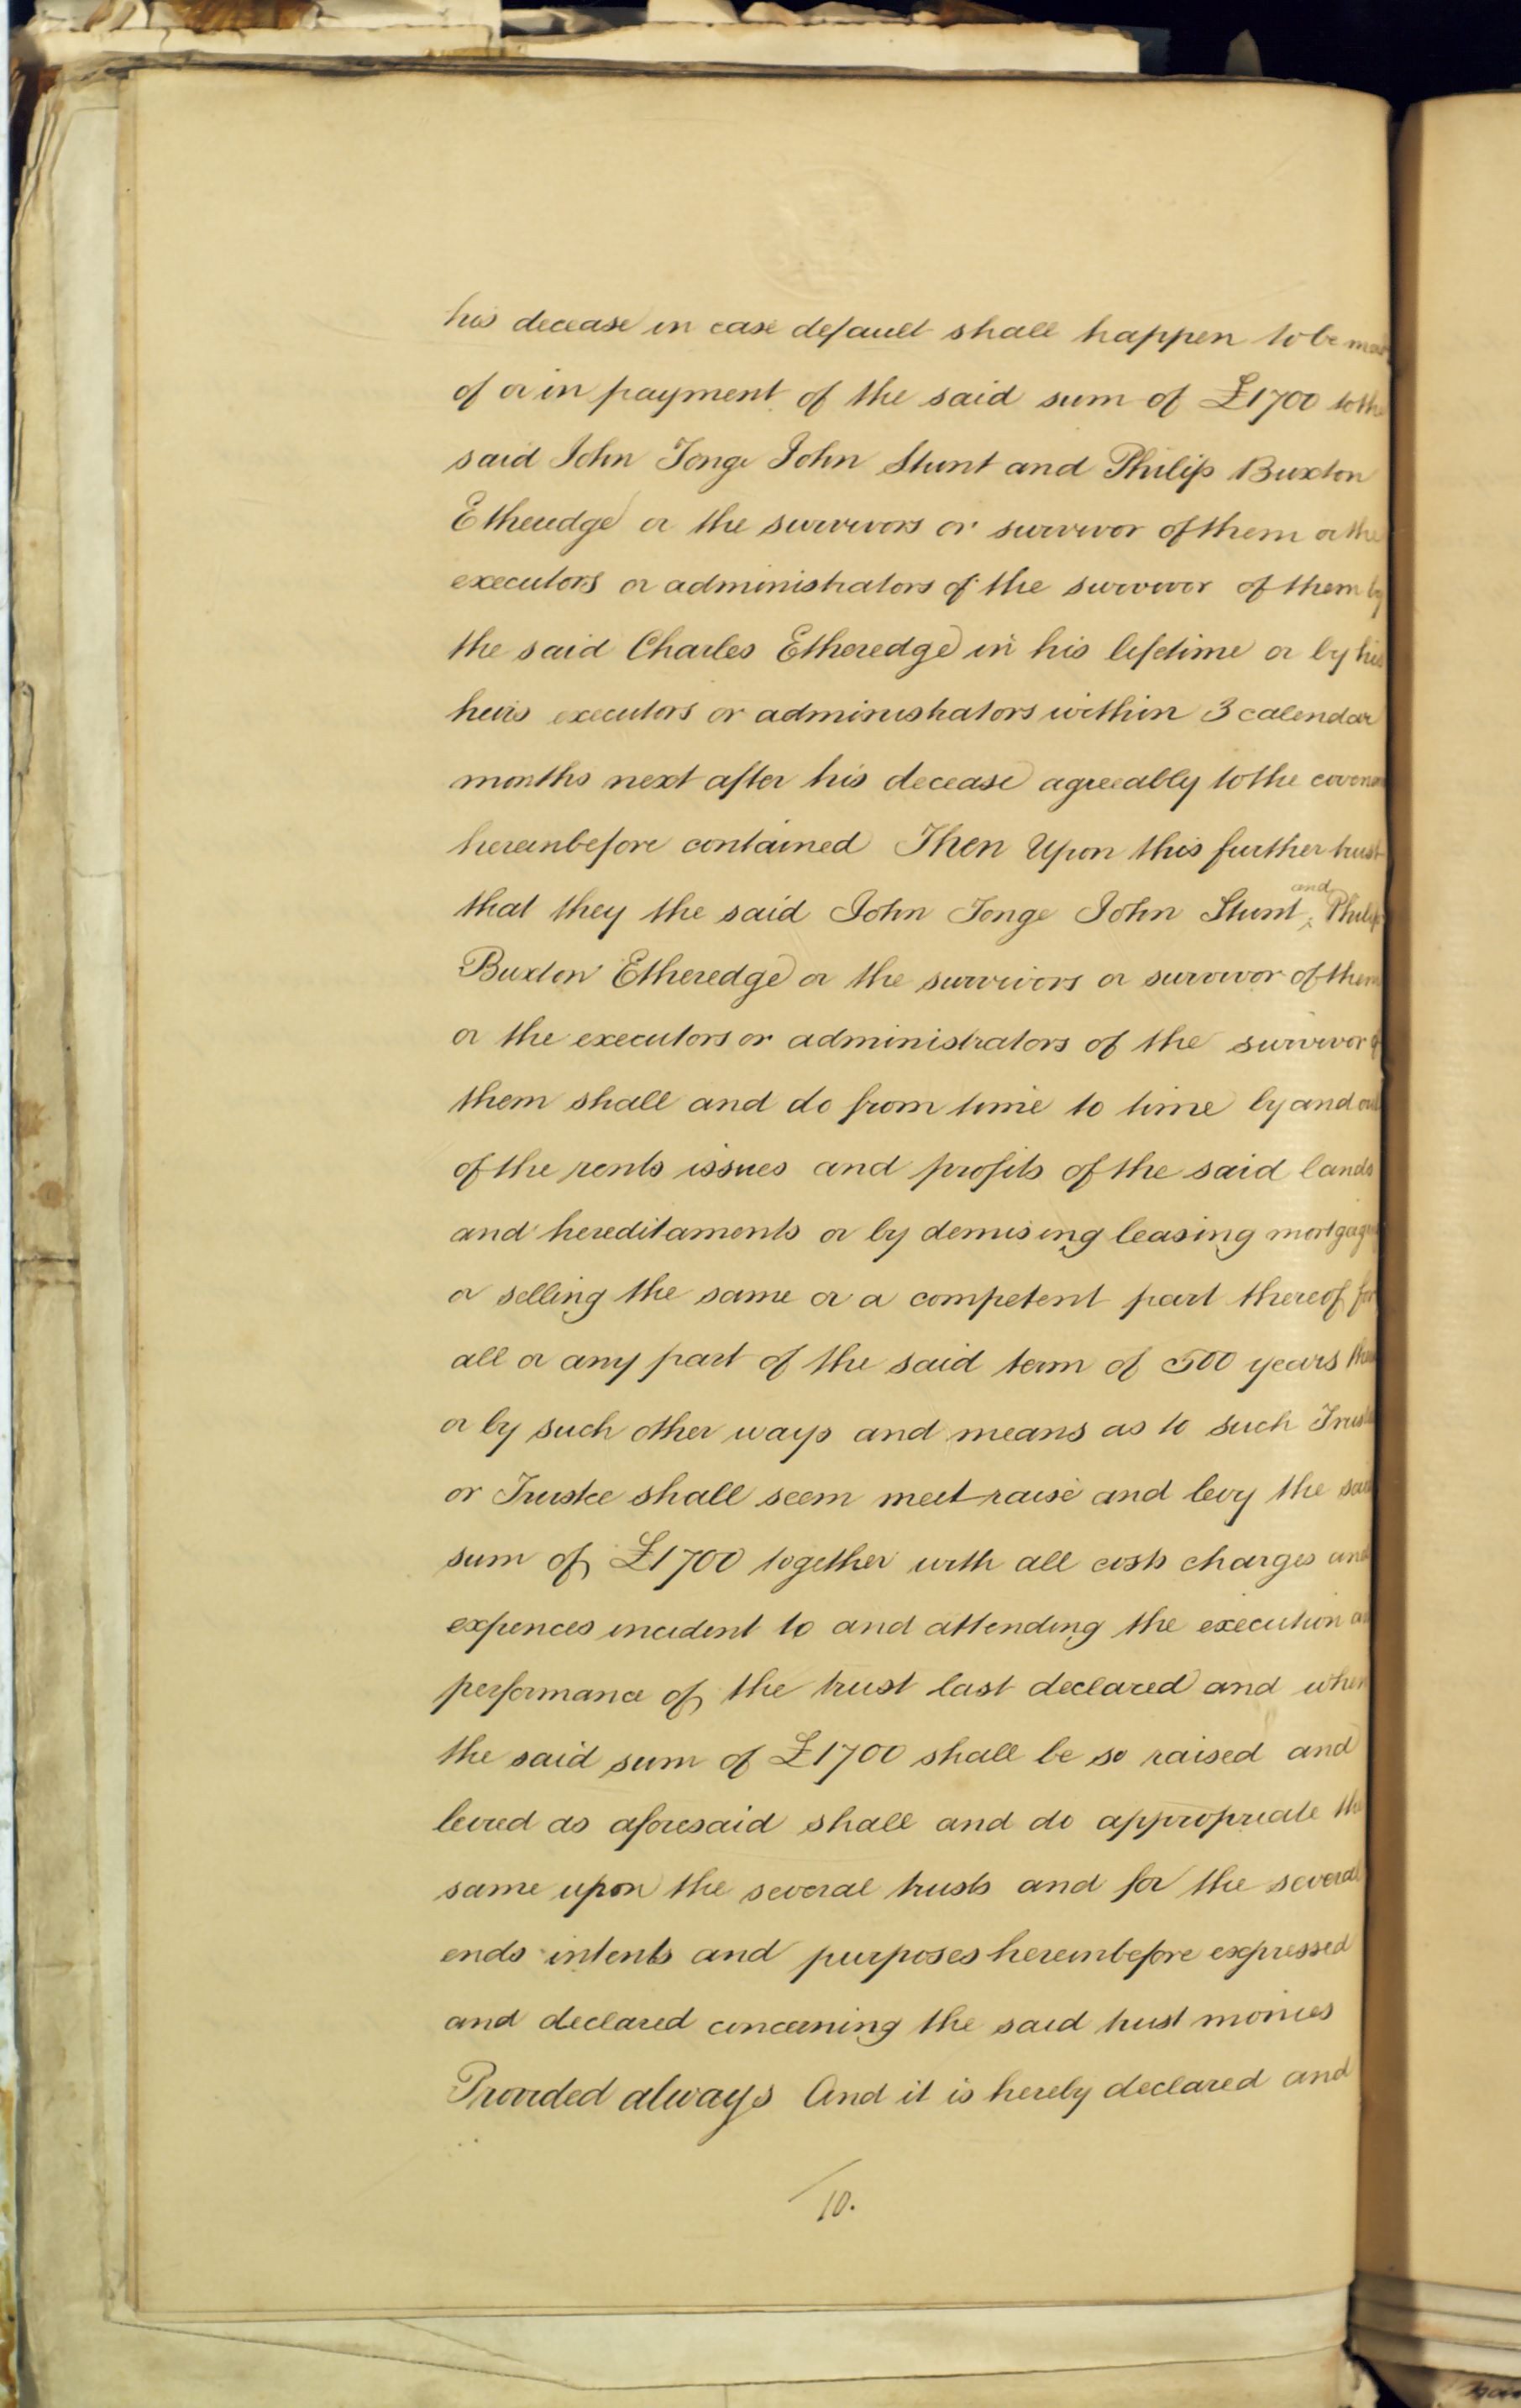 his decease in case default shall happen to be
of or in payment of the said sum of £1700 to the
said John Tonge John Stunt and Philip Buxton
Etheredge or the survivors or survivor of them or the
executors or administrators of the survivor of them by
the said Charles Etheredge in his lifetime or by his
heirs executors or administrators within 3 calendar
months next after his decease agreeably to the
hereinbefore contained Then Upon this further trust
that they the said John Tonge John Stunt and Philip
Buxton Etheredge or the survivors or survivor of them
or the executors or administrators of the survivor of
them shall and do from time to time by and out
of the rents issues and profits of the said lands
and hereditaments or by demising leasing
or selling the same or a competent part thereof for
all or any part of the said term of 500 years
or by such other ways and means as to such
or Trustee shall seem meet raise and levy the said
sum of £1700 together with all costs charges and
expences incident to and attending the execution
performance of the trust last declared and when
the said sum of £1700 shall be so raised and
levied as aforesaid shall and do appropriate the
same upon the several trusts and for the several
ends intents and purposes hereinbefore expressed
and declared concerning the said trust monies
Provided always And it is hereby declared and
10.